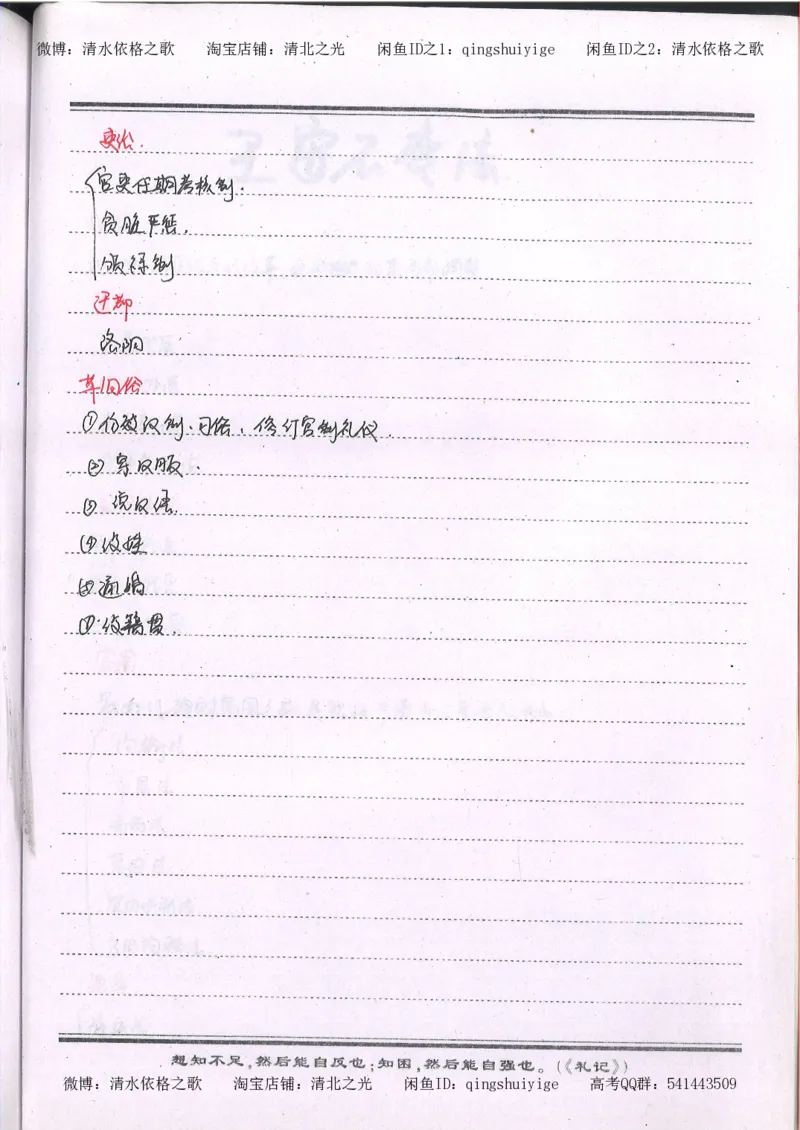 微博：清水依格之歌 淘宝店铺：清北之光 闲鱼ID之1：qingshuiyige 闲鱼ID之2：清水依格之歌
变法.
官吏任期考核制.
贪脏严惩.
颁禄制
迁都
洛阳
革旧俗
①仿效汉制、习俗，修订官制礼仪.
②穿汉服.
③说汉语.
④改姓
⑤通婚
改籍贯.
想知不足，然后能自反也；知困，然后能自强也。（《礼记》）
微博：清水依格之歌 淘宝店铺：清北之光 闲鱼ID：qingshuiyige 高考QQ群：541443509